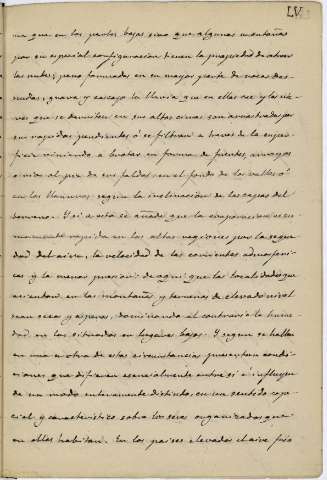 LV
na que en las partes bajas, sino que algunas montañas
por su especial configuracion tienen la propiedad de atraer
las nubes; pero formadas en su mayor parte de rocas des-
nudas, grava y cascajo la lluvia que en ellas cae y las nie-
ves que se derriten en sus altas cimas son arrastradas por
sus rapidas pendientes ó se filtran a traves de la super-
ficie viniendo a brotar en forma de fuentes, arroyos
ó rios al pie de sus faldas, en el fondo de los valles ó
en las llanuras segun la inclinacion de las capas del
terreno. Y si a esto se añade que la evaporacion es su-
mamente rapida en las altas regiones por la seque-
dad del aire, la velocidad de las corrientes atmosferi-
cas y la menor presion: de aqui que las localidades que
asientan en las montañas y terrenos de elevado nivel
sean secas y asperas, dominando al contrario la hume-
dad en las situadas en lugares bajos. Y segun se hallen
en una u otra de estas circunstancias presentan condi-
ciones que difieren esencialmente entre si é influyen
de un modo enteramente distinto, en un sentido espe-
cial y caracteristico sobre los seres organizados que
en ellas habitan. En los paises elevados el aire frio